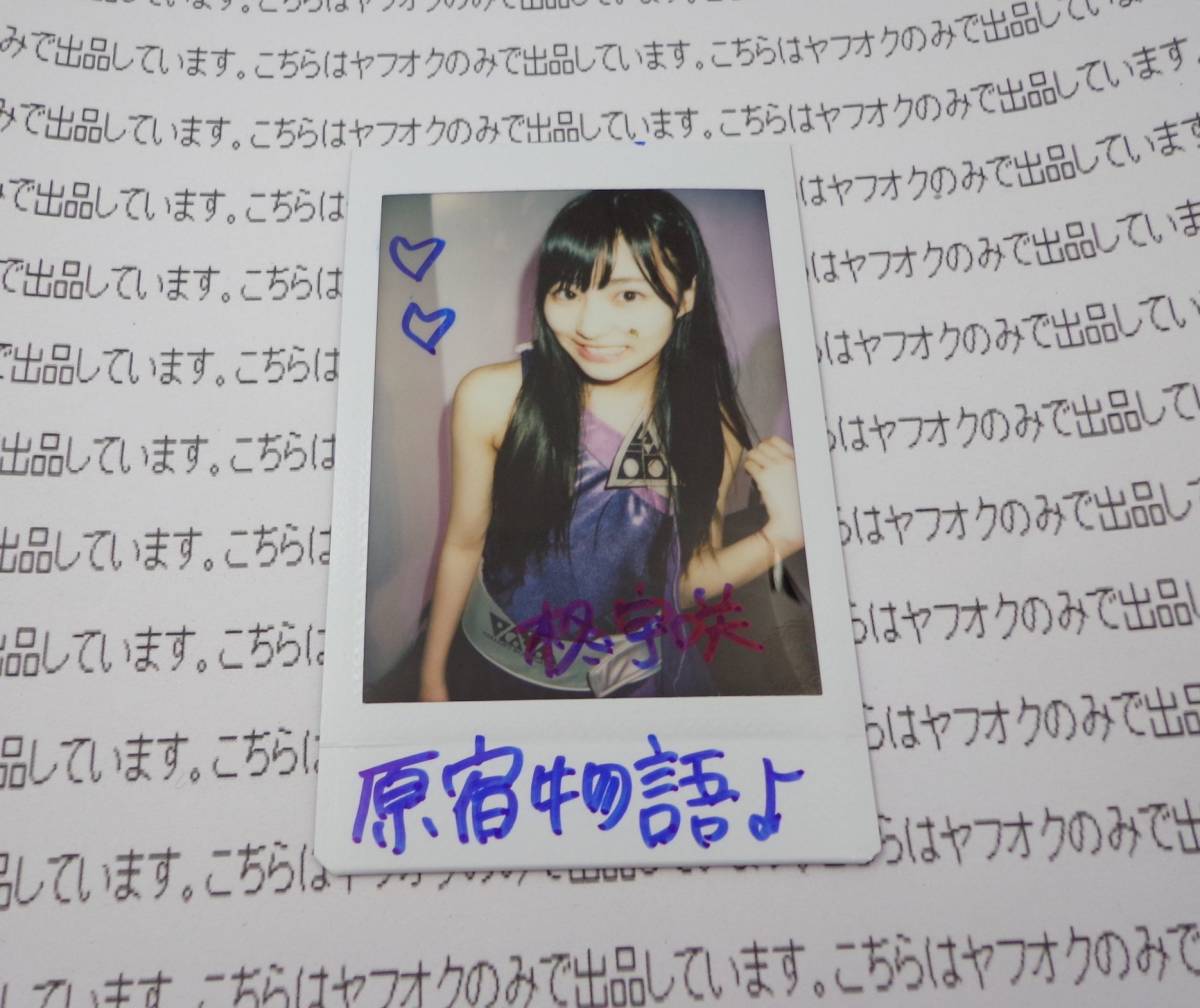 しています。こちらはヤフオクのみで出品しています。
みで出品しています。こちらはヤフオクのみで出品しています。こちらはヤフオクのみで出品してい
みで出品しています。こちらはヤフオクのみで出品しています。こちらはヤフオクのみで出品しています。
で出品しています。こちらは
はヤフオクのみで出品しています
で出品しています。こちらは
はヤフオクのみで出品していま
で出品しています。こちらは
はヤフオクのみで出品してい
出品しています。こちら
はヤフオクのみで出品して
出品しています。こちら
らはヤフオクのみで出品し
品しています。こちら
らはヤフオクのみで出品
柊宇咲
品しています。こちら
らはヤフオクのみで出品
原宿物語♪
品しています。こちらは
らはヤフオクのみで出
しています。こちらはヤフオクのみで出品しています。こちらはヤフオクのみで